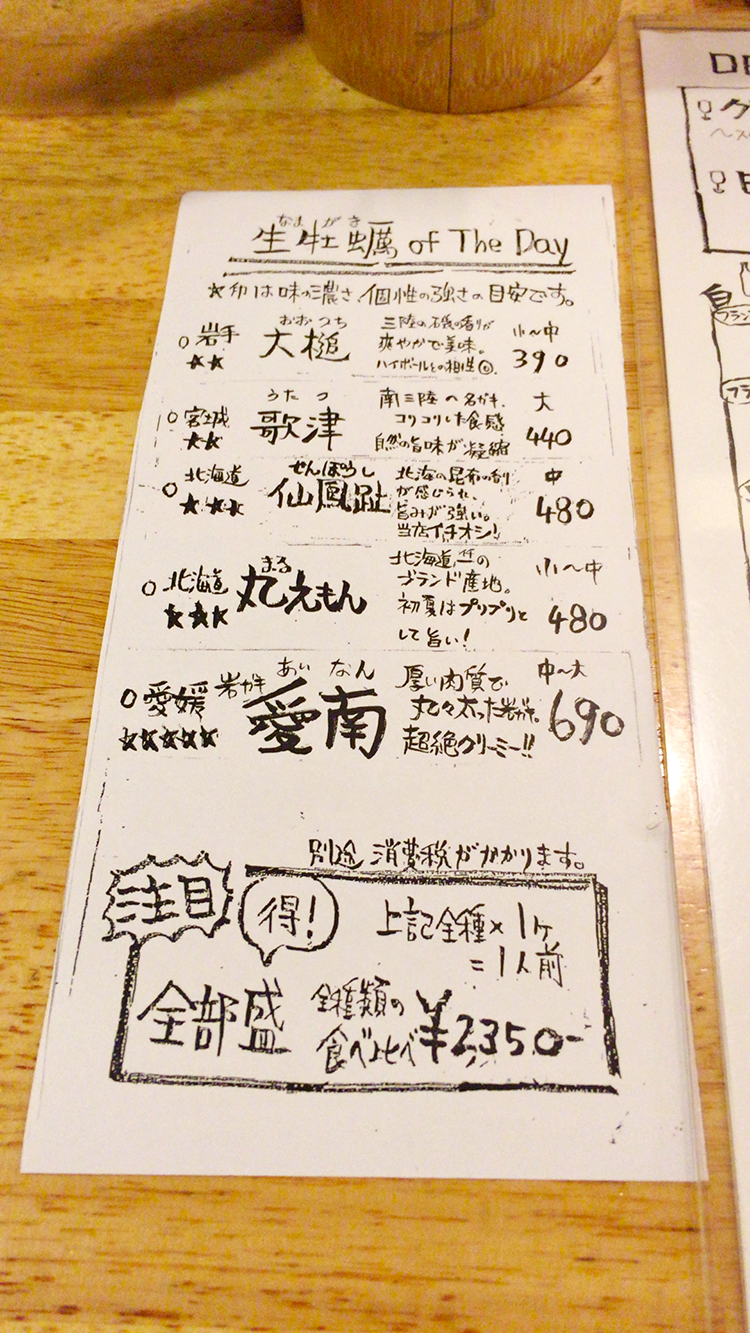 なま がき
生牡蠣 of The Day
★印は味の濃さ、個性の強さの目安です。
○岩手
★★
おおつち
大槌
三陸の磯の香りが
爽やかで美味。
ハイボールとの相性◎.
小〜中
390
○宮城
★★
うたつ
歌津
南三陸の名ガキ.
コリコリした食感
自然の旨味が凝縮
大
440
○北海道
★★★
せんぽうし
仙鳳趾
北海の昆布の香り
が感じられ、
旨みが強い。
当店イチオシ!
中
480
○北海道
★★★
まる
丸えもん
北海道一の
ブランド産地。
初夏はプリプリと
して旨い!
小〜中
480
○愛媛
★★★★★
岩ガキ
あい なん
愛南
厚い肉質で
丸々太った岩ガキ。
超絶クリーミー!!
中〜大
690
別途 消費税がかかります。
注目
得!
上記全種×1ヶ
=1人前
全部盛
全種類の
食べ比べ
¥2350-